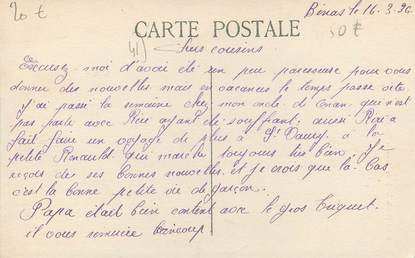 20 €
Binas le 16.3.20
CARTE POSTALE
50 €
41)
Chers cousins
Excusez moi d'avoir été un peu paresseuse pour vous
donner des nouvelles mais en vacances le temps passe vite
j'ai passé la semaine chez mon oncle de qui n'est
pas parti avec ayant été souffrant, aussi
fait faire un voyage de plus à à la
petite Renault qui marche toujours très bien, je
reçois des ses bonnes nouvelles et je crois que là-bas
c'est la bonne petite vie de garçon.
Papa était bien content avec le gros
il vous remercie beaucoup